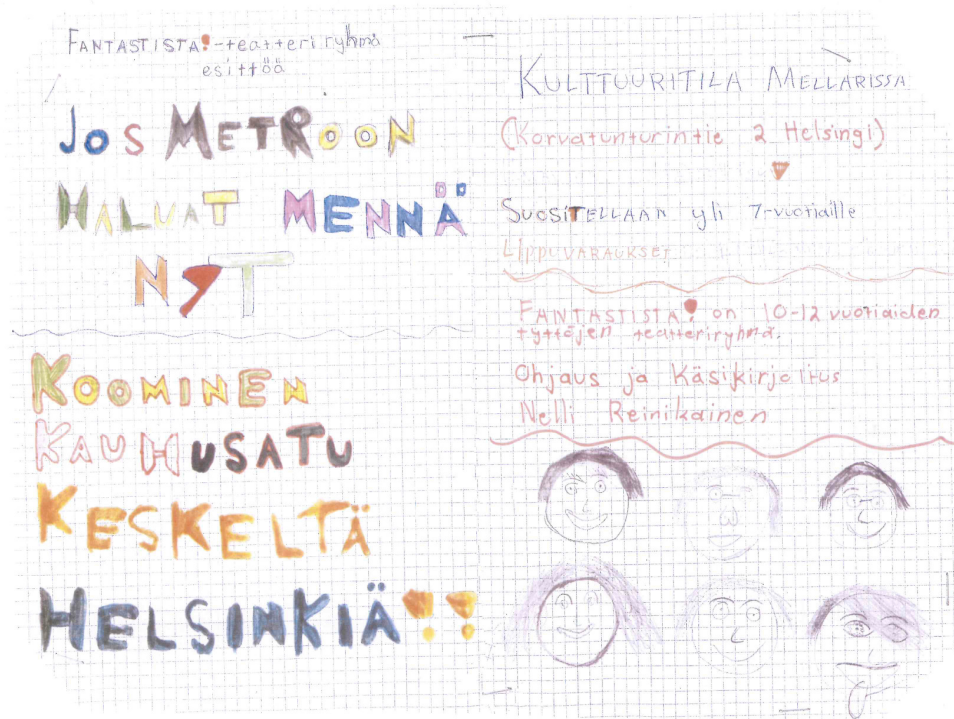 FANTASTISTA!-teatteri ryhmä
esittää
JOS METROON
HALUAT MENNÄ
NYT
KOOMINEN
KAUHUSATU
KESKELTÄ
HELSINKIÄ!!
KULTTUURITILA MELLARISSA
(Korvatunturintie 2 Helsingi)
SUOSITELLAAN yli 7-vuotiaille
LIPPUVARAUKSET
FANTASTISTA! on 10-12 vuotiaiden
tyttöjen teatteriryhmä.
Ohjaus ja Käsikirjoitus
Nelli Reinikainen